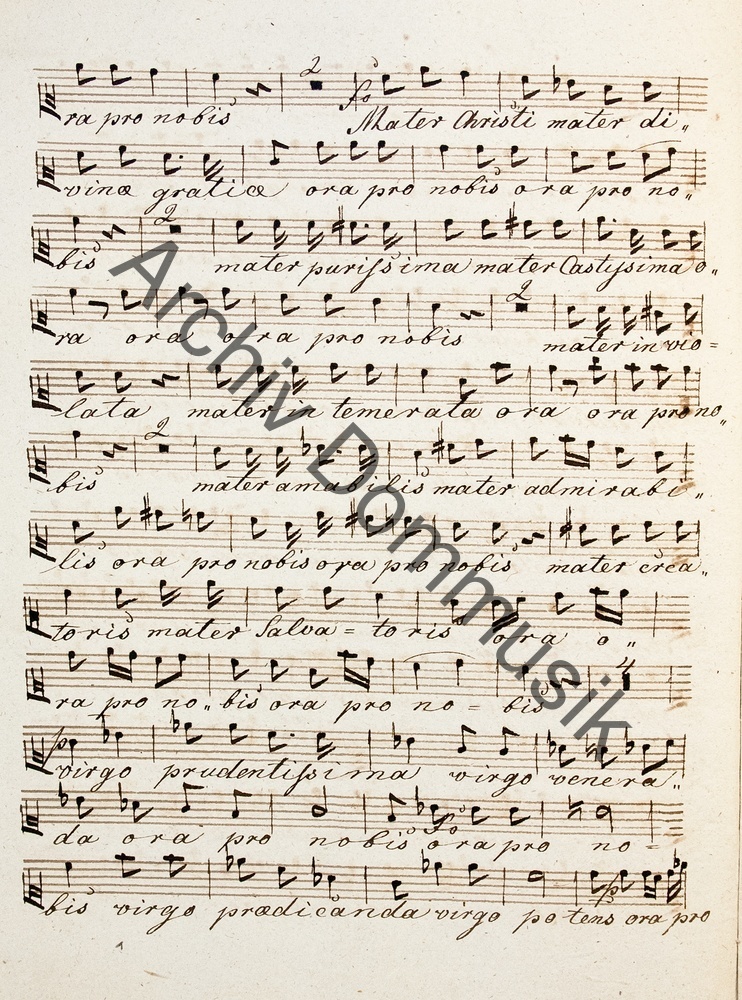 2
fo
ra pro nobis Mater Christi mater di„
vinæ gratiæ ora pro nobis ora pro no„
2
bis mater purissima mater Castissima o„
2
ra ora ora pro nobis mater in vio=
lata mater in temerata ora ora pro no„
2
bis mater amabilis mater admirabi„
lis ora pro nobis ora pro nobis mater crea„
toris mater Salva=toris ora o„
4
ra pro no„bis ora pro no=bis
p
virgo prudentissima virgo venera„
fo
da ora pro nobis ora pro no=
p
bis virgo prædicanda virgo potens ora pro
Archiv Dommusik